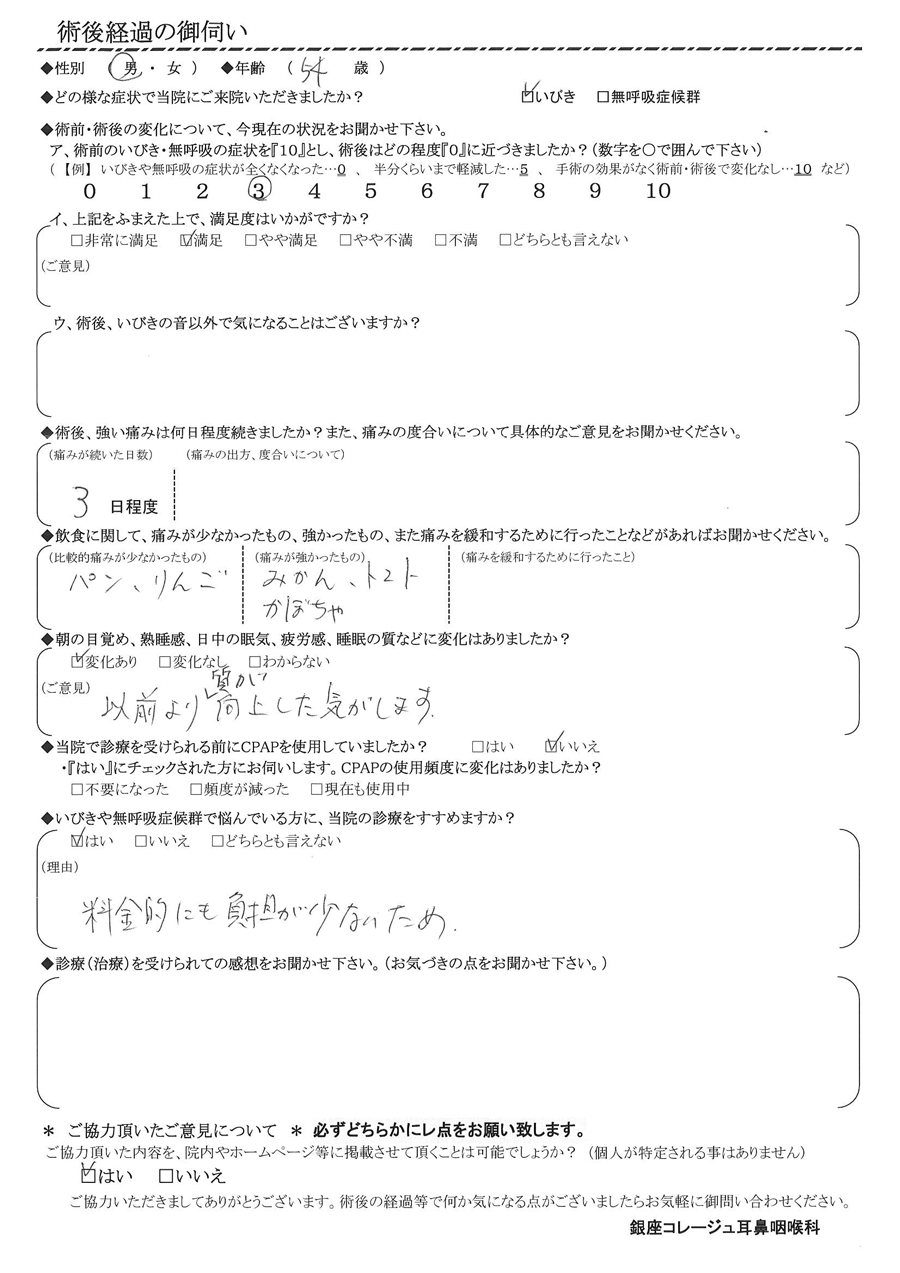 術後経過の御伺い
◆性別 (男・女) ◆年齢 (54 歳)
◆どの様な症状で当院にご来院いただきましたか? ☑いびき □無呼吸症候群
◆術前・術後の変化について、今現在の状況をお聞かせ下さい。
ア、術前のいびき・無呼吸の症状を『10』とし、術後はどの程度『0』に近づきましたか?(数字を○で囲んで下さい)
(【例】 いびきや無呼吸の症状が全くなくなった…0 、 半分くらいまで軽減した…5 、 手術の効果がなく術前・術後で変化なし…10 など)
0 1 2 3 4 5 6 7 8 9 10
イ、上記をふまえた上で、満足度はいかがですか?
□非常に満足 ☑満足 □やや満足 □やや不満 □不満 □どちらとも言えない
(ご意見)
ウ、術後、いびきの音以外で気になることはございますか?
◆術後、強い痛みは何日程度続きましたか?また、痛みの度合いについて具体的なご意見をお聞かせください。
(痛みが続いた日数) (痛みの出方、度合いについて)
3 日程度
◆飲食に関して、痛みが少なかったもの、強かったもの、また痛みを緩和するために行ったことなどがあればお聞かせください。
(比較的痛みが少なかったもの) (痛みが強かったもの) (痛みを緩和するために行ったこと)
パン、りんご みかん、トマト
かぼちゃ
◆朝の目覚め、熟睡感、日中の眠気、疲労感、睡眠の質などに変化はありましたか?
☑変化あり □変化なし □わからない
(ご意見)
以前より質が向上した気がします.
◆当院で診療を受けられる前にCPAPを使用していましたか? □はい ☑いいえ
・『はい』にチェックされた方にお伺いします。CPAPの使用頻度に変化はありましたか?
□不要になった □頻度が減った □現在も使用中
◆いびきや無呼吸症候群で悩んでいる方に、当院の診療をすすめますか?
☑はい □いいえ □どちらとも言えない
(理由)
料金的にも負担が少ないため.
◆診療(治療)を受けられての感想をお聞かせ下さい。(お気づきの点をお聞かせ下さい。)
＊ ご協力頂いたご意見について ＊ 必ずどちらかにレ点をお願い致します。
ご協力頂いた内容を、院内やホームページ等に掲載させて頂くことは可能でしょうか? (個人が特定される事はありません)
☑はい □いいえ
ご協力いただきましてありがとうございます。術後の経過等で何か気になる点がございましたらお気軽に御問い合わせください。
銀座コレージュ耳鼻咽喉科